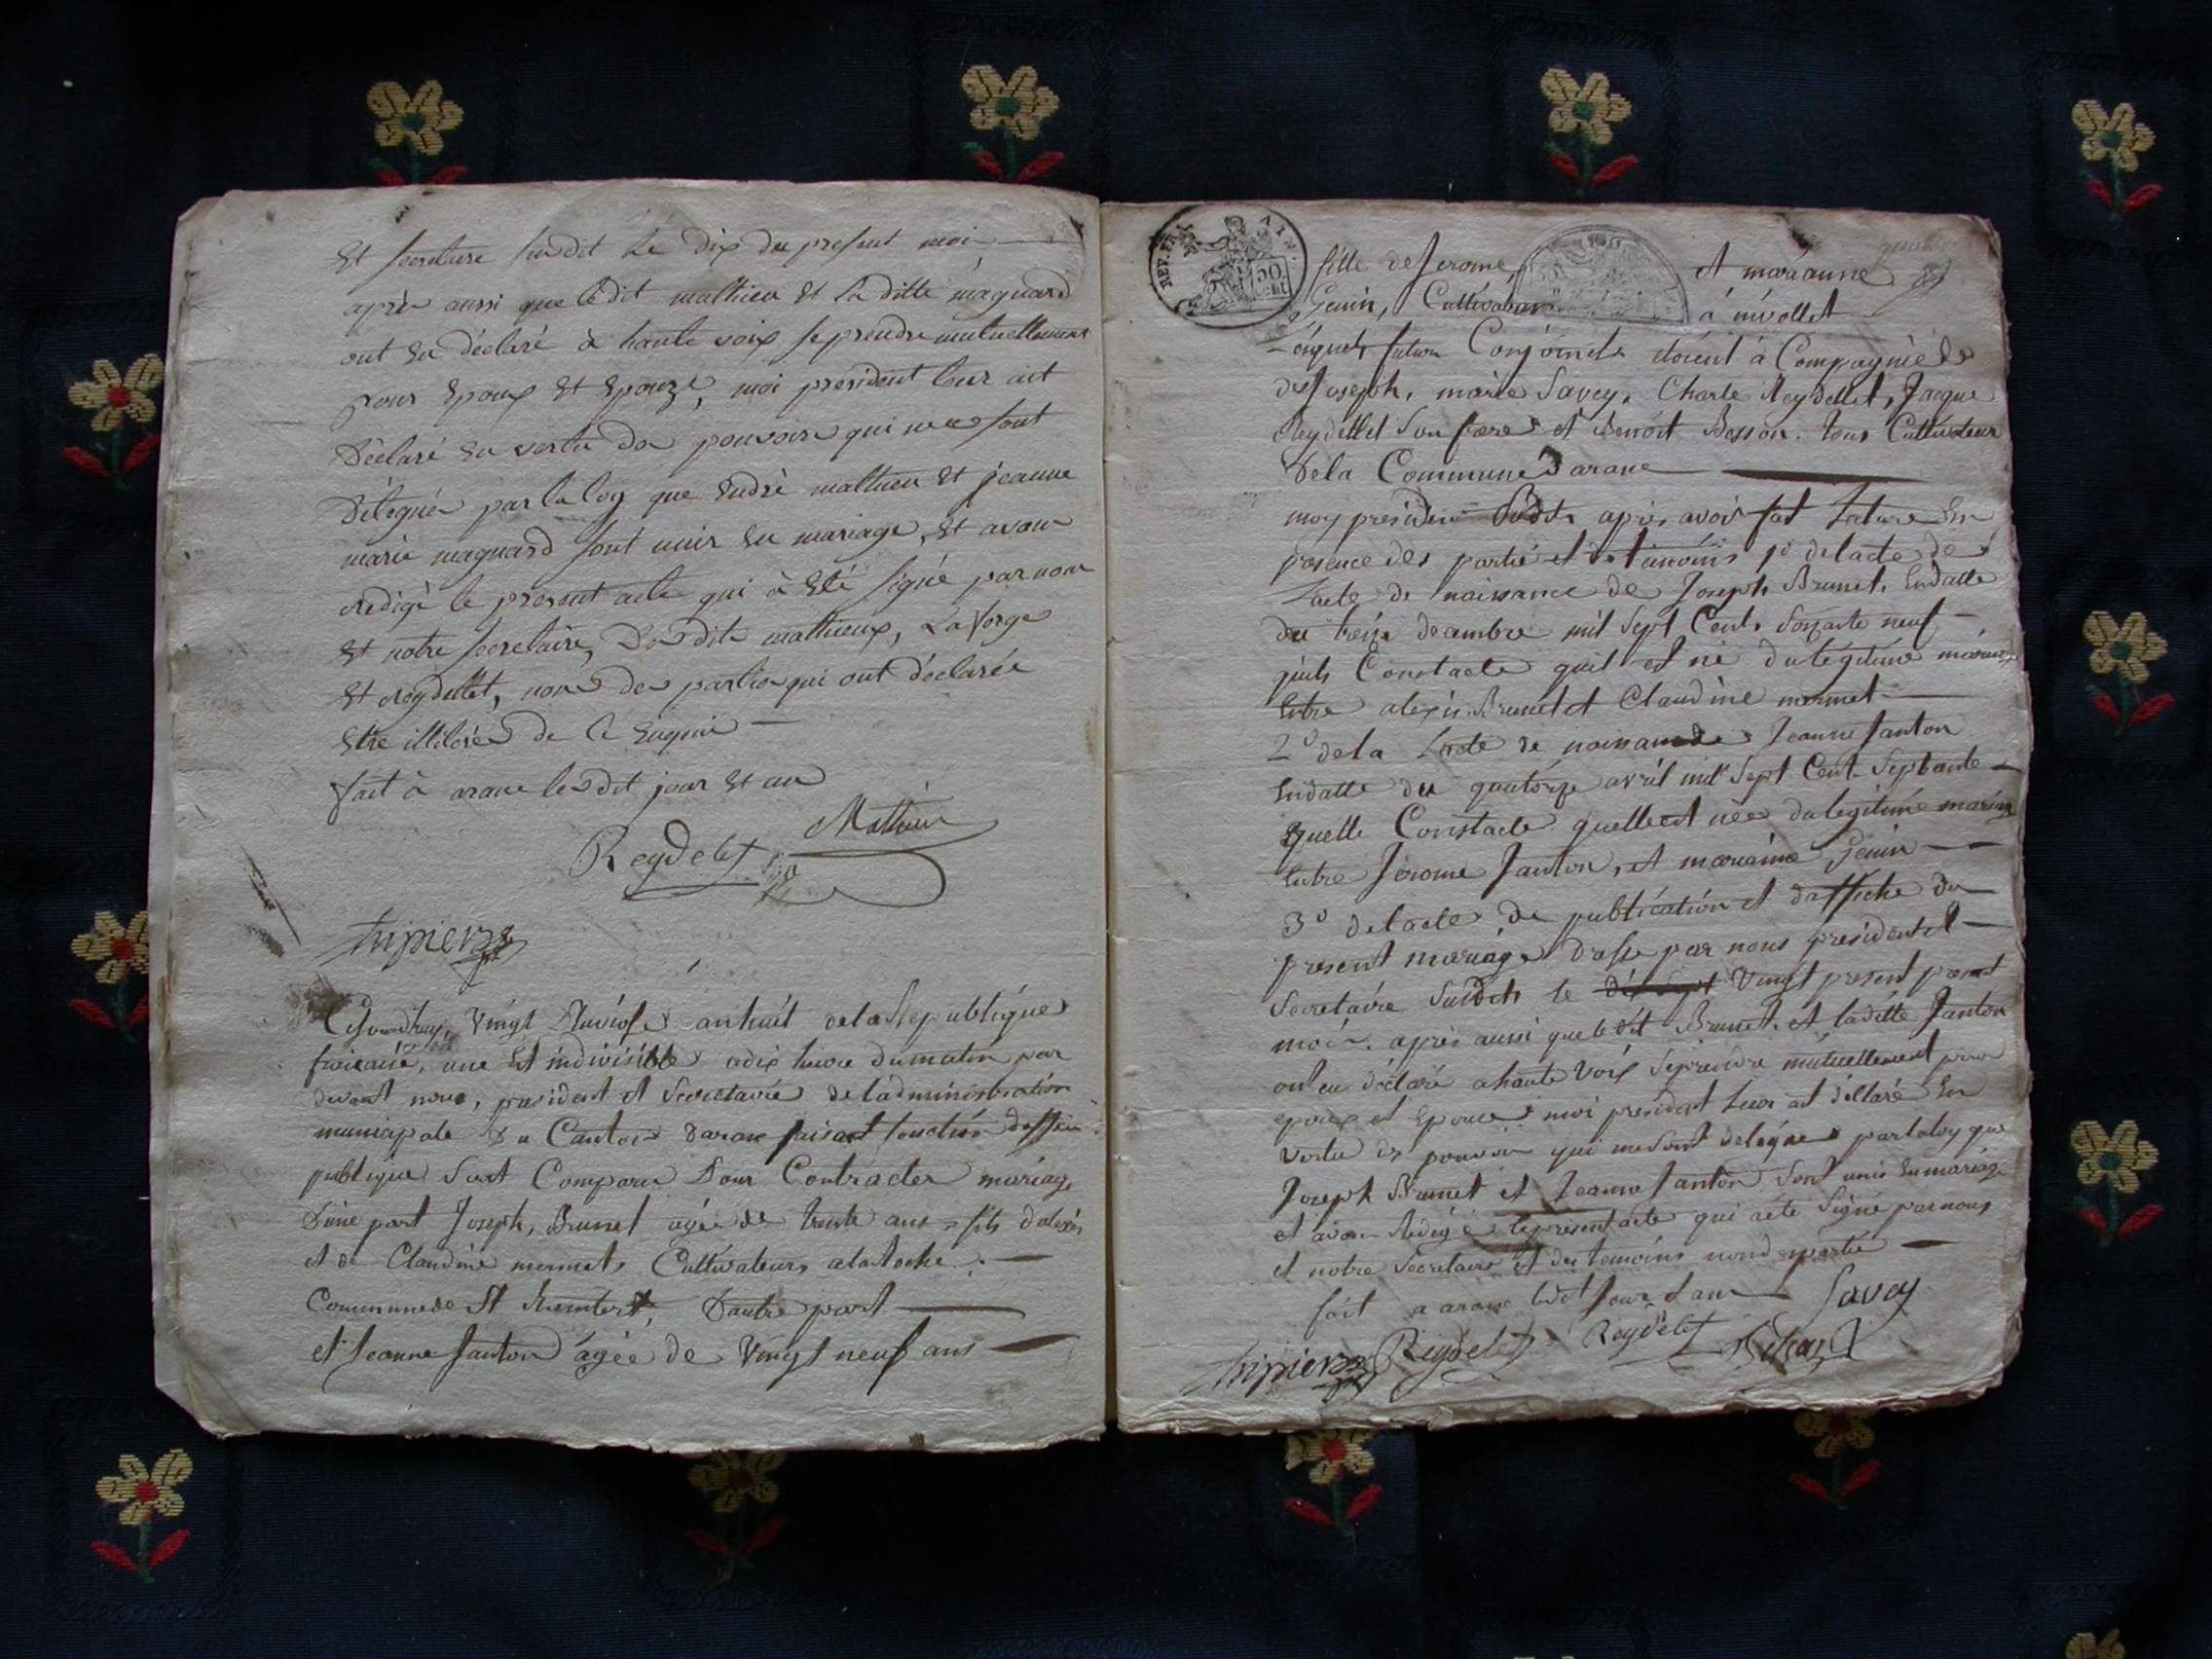 Et secretaire susdit le dix du present moi
après aussi que le dit mathieu Et la ditte maguard
ont Eu déclaré à haute voix se prendre mutuellement
pour Epoux Et Epouze, moi president leur ait
Déclaré En vertu des pouvoirs qui me sont
Délegués par la loy que André mathieu Et jeanne
marie maguard sont unis En mariage, Et avons
redigé le present acte qui à Eté signé par nous
Et notre secretaire, Les dits mathieux, Laforge
Et Reydellet, non des parties qui ont déclarée
Etre illiterée de ce Enquis
fait à arane les dit jour Et an
Mathieu
Reydelet
tripierz
Cejourdhuy, Vingt Pluviose an huit de la Republique
francaise, une Et indivisible a dix heure du matin par
devant nous, president et Secretaire de ladministration
municipale Du Canton daran faisant fonction doffisier
publique Sont Comparu Pour Contracter mariage
Dune part Joseph, Brunet agée de trente ans fils dalexis
et de Claudine mermet, Cultivateurs alatoche
Commune de St Rambert, Dautre part
et Jeanne Janton âgée de Vingt neuf ans
REP. FRA
50. cent
fille de Jerome, et marianne
Genin, Cultivateurs à nivollet
futur Conjoinds etoient à Compagniè de
de Joseph, marie Savey, Charle Reydellet, Jacque
Reydellet Son frere et Benoit Besson. tous Cultivateur
De la Commune Darane
moy president Susdit après avoir fait Lature En
presence des partie et des temoins 1º de lacte de
Lacte de naissance de Joseph Brunet, Endatte
du treize decembre mil Sept Cent, Soixante neuf
quils Constacte quil est né du légitime mariage
Entre alexis Brunet et Claudine mermet
2º de la Lacte de naissance de Jeanne Janton
Endatte du quatorze avril mil Sept Cent Septante
Quelle Constacte quelle est née du legitime mariage
Entre Jerome Janton, et marianne Genin
3º de lacte de publication et daffiche du
present mariage Dresse par nous president et
Secretaire Susdits le dix sept Vingt present present
mois. après aussi que le dit Brunet, et la ditte Janton
ont eu déclaré a haute Voix Seprendre mutuellement pour
epoux et Epouce moi president Leur ait déllaré En
vertu des pouvoir qui me sont delegues par la loy que
Joseph Brunet et Jeanne Janton Sont unis En mariage
et avon Redigé le present acte qui aété Signé par nous
et notre Secretaire et des temoins non des partie
fait a arane ledit Jour et an
Savey
tripierz Reydelet Reydelet